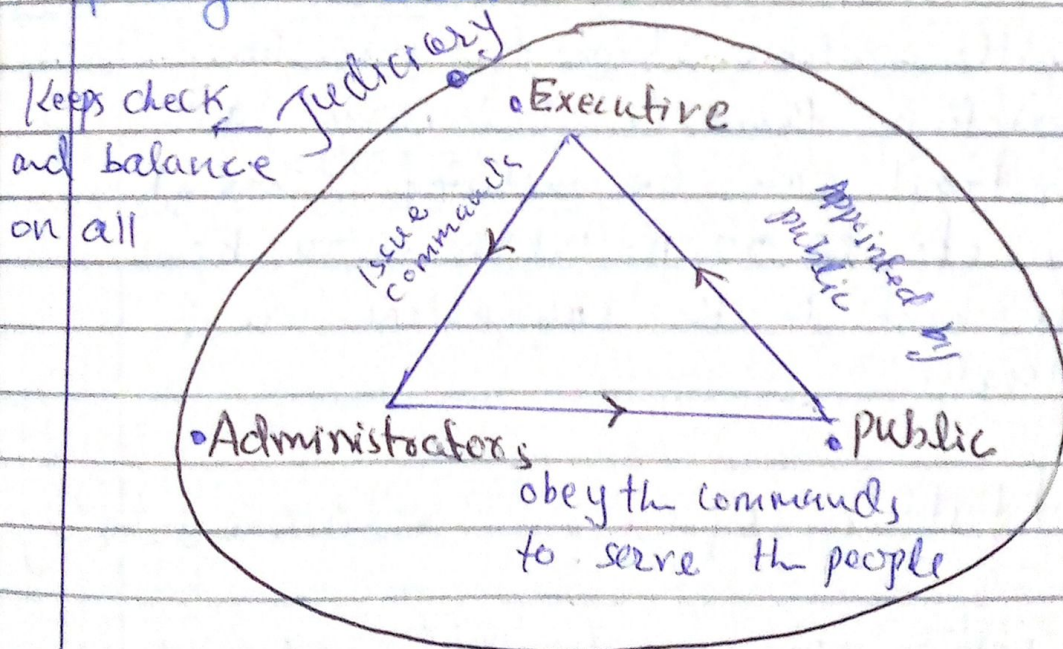 Judiciary
Keeps check
and balance
on all
Executive
Issue
commands
Appointed by
public
Administrators
public
obey the commands
to serve the people